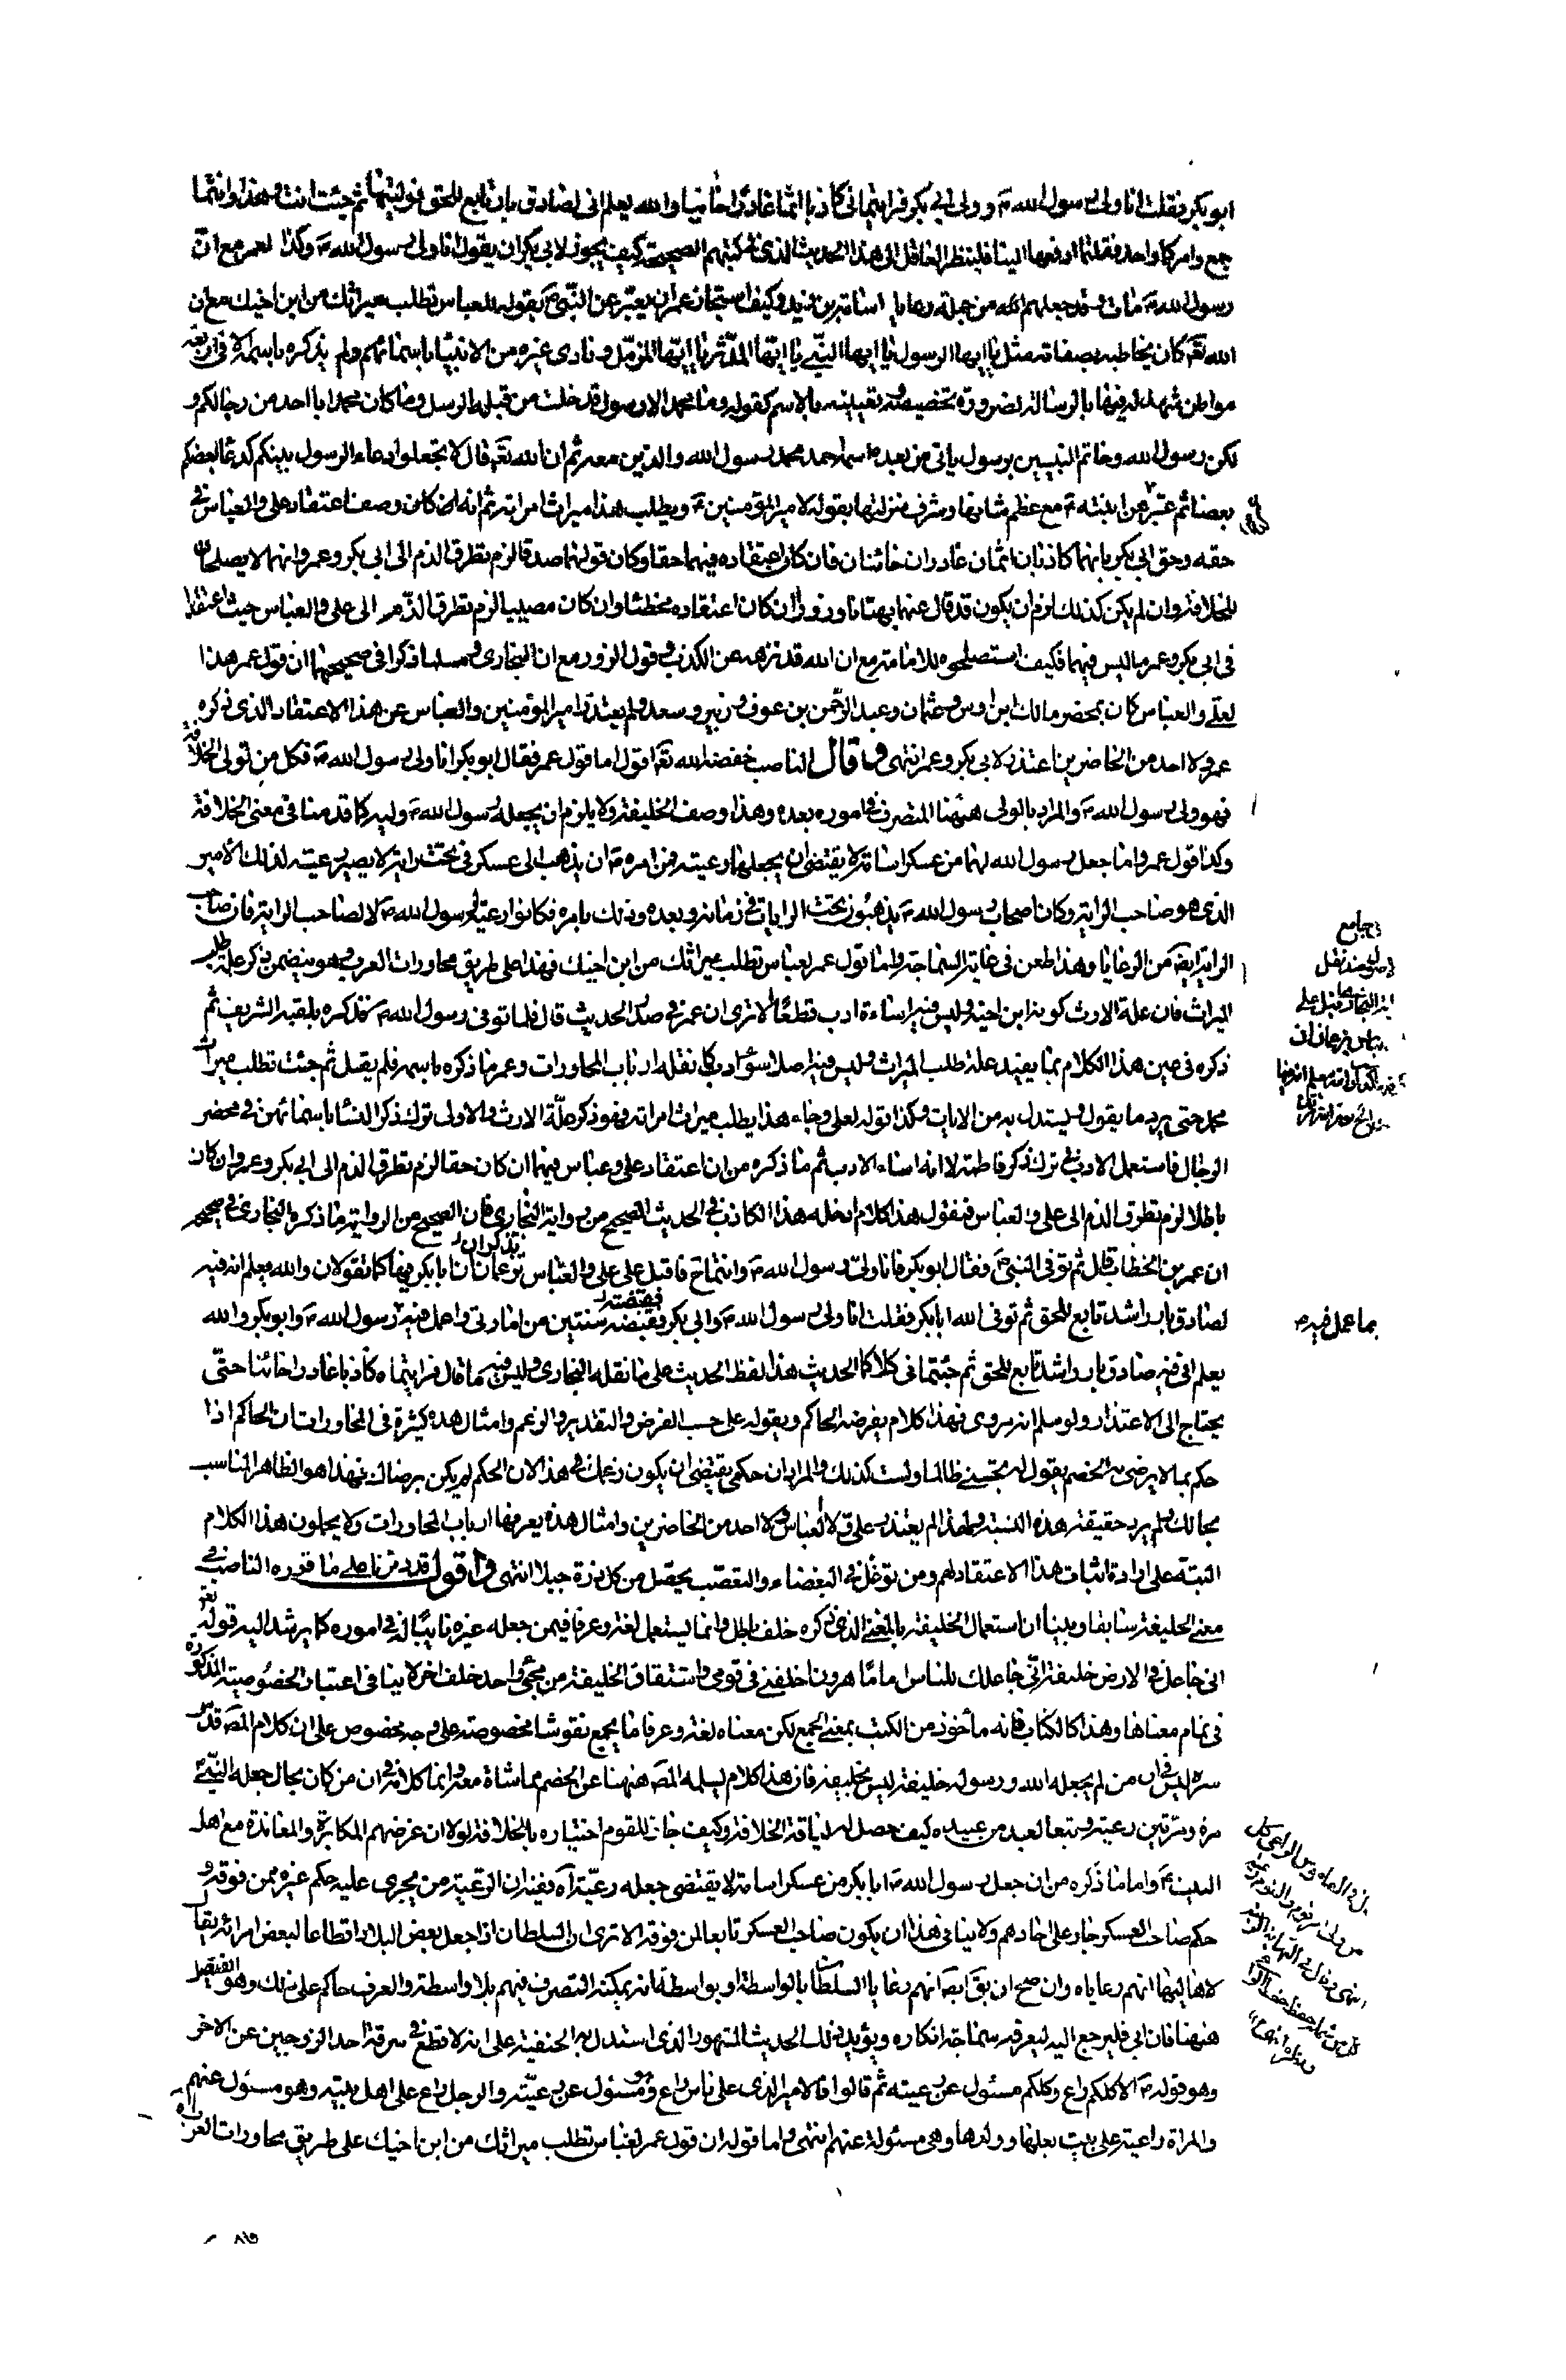 ابو بكر فقلت انا ولى رسول الله ص وولى ابى بكر فرايتمانى كاذبا اثما غادرا خائنا والله يعلم انى لصادق بار تابع للحق فوليتها ثم جئت انت وهذا وانتما
جميع وامركما واحد فقلتما ادفعها الينا فلينظر العاقل الى هذا الحديث الذى فى كتبهم الصحيحة كيف يجوز لابى بكر ان يقول انا ولى رسول الله ص وكذا لعمر مع ان
رسول الله ص مات وقد جعلهم الله من جملة رعايا اسامة بن زيد وكيف استجاز عمر ان يعبر عن النبى ص بقوله للعباس تطلب ميراثك من ابن اخيك مع ان
الله تعم كان يخاطبه بصفاته مثل يا ايها الرسول يا ايها النبى يا ايها المدثر يا ايها المزمل ونادى غيره من الانبياء باسمائهم ولم يذكره باسمه الا فى اربعة
مواطن شهد له فيها بالرسالة لضرورة تخصيصه وتعيينه بالاسم كقوله وما محمد الا رسول قد خلت من قبله الرسل وما كان محمد ابا احد من رجالكم و
لكن رسول الله وخاتم النبيين برسول ياتى من بعدى اسمه احمد محمد رسول الله والذين معه ثم ان الله تعم قال لا تجعلوا دعاء الرسول بينكم كدعاء بعضكم
بعضا ثم عبر عن ابنته ع مع عظم شانها وشرف منزلتها بقوله لامير المؤمنين ع ويطلب هذا ميراث امراته ثم انه ان كان وصف اعتقاد على والعباس فى
حقه وحق ابى بكر بانهما كاذبان اثمان غادران خائنان فان كان اعتقاده فيهما حقا وكان قولهما صدقا لزم تطرق الذم الى ابى بكر وعمر وانهما لا يصلحان
للخلافة وان لم يكن كذلك لزم ان يكون قد قال عنهما بهتانا وزورا ان كان اعتقاده مخطئا وان كان مصيبا لزم تطرق الذم الى على والعباس حيث اعتقدا
فى ابى بكر وعمر ما ليس فيهما فكيف استصلحوه للامامة مع ان الله قد نزهه عن الكذب وقول الزور مع ان البخارى ومسلما ذكرا فى صحيحهما ان قول عمر هذا
لعلى والعباس كان بمحضر مالك ابن اوس وعثمان وعبد الرحمن بن عوف وزبير وسعد ولم يعتذر امير المؤمنين والعباس عن هذا الاعتقاد الذى ذكره
عمر ولا احد من الحاضرين اعتذر لابى بكر وعمر انتهى وقال الناصب خفضه الله تعم اقول اما قول عمر فقال ابو بكر انا ولى رسول الله ص فكل من تولى الخلافة
فهو ولى رسول الله ص والمراد بالولى هيهنا المتصرف فى اموره بعده وهذا وصف الخليفة ولا يلزم ان يجعله رسول الله ص وليه كما قدمنا فى معنى الخلافة
وكذا قول عمر واما جعل رسول الله لهما من عسكر اسامة لا يقتضى ان يجعلهما رعيته فمن امره ص ان يذهب الى عسكر فى تحت راية لا يصير رعيته لذلك الامير
الذى هو صاحب الراية وكان اصحاب رسول الله ص يذهبون تحت الرايات فى زمانه وبعده وذلك بامره فكانوا رعية لرسول الله ص لا لصاحب الراية فان صاحب
الراية ايضا من الرعايا وهذا طعن فى غاية السماجة واما قول عمر لعباس تطلب ميراثك من ابن اخيك فهذا على طريق محاورات العرب وهو يتضمن ذكر علة طلب
الميراث فان علة الارث كونه ابن اخيه وليس فيه اساءة ادب قطعا الا ترى ان عمر فى صدر الحديث قال فلما توفى رسول الله ص فذكره بلقبه الشريف ثم
ذكره فى حين هذا الكلام بما يفيد علة طلب الميراث وليس فيه اصلا سوء ادب كما نقله ارباب المحاورات وعمر ما ذكره باسمه فلم يقل ثم جئت تطلب ميراث
محمد حتى يرد ما يقول ويستدل به من الايات وكذا قوله لعلى وجاء هذا يطلب ميراث امراته فهو ذكر علة الارث والاولى ترك ذكر النساء باسمائهن فى محضر
الرجال فاستعمل الادب فى ترك ذكر فاطمة لا انه اساء الادب ثم ما ذكره من ان اعتقاد على وعباس فيهما ان كان حقا لزم تطرق الذم الى ابى بكر وعمر وان كان
باطلا لزم تطرق الذم الى على والعباس فنقول هذا كلام ادخله هذا الكاذب فى الحديث الصحيح من رواية البخارى فان الصحيح من الرواية ما ذكره البخارى فى صحيحه
ان عمر بن الخطاب قال ثم توفى النبى ص فقال ابو بكر فانا ولى رسول الله ص وانتما ح فاقبل على على والعباس تزعمان ان ابا بكر فيها كما تقولان والله يعلم انه فيه
تذكران
لصادق بار راشد تابع للحق ثم توفى الله ابا بكر فقلت انا ولى رسول الله ص وابى بكر فقبضته سنتين من امارتى واعمل فيه رسول الله ص وابو بكر والله
بما عمل فيه ص
يعلم انى فيه صادق بار راشد تابع للحق ثم جئتمانى كلاكما الحديث هذا لفظ الحديث على ما نقله البخارى وليس فيه ما قال فرايتماه كاذبا غادرا خائنا حتى
يحتاج الى الاعتذار ولو سلم انه مروى فهذا كلام يفرضه الحاكم ويقوله على حسب الفرض والتقدير والزعم وامثال هذه كثيرة فى المحاورات ان الحاكم اذا
حكم بما لا يرضى به الخصم يقول له تحسبنى ظالما ولست كذلك والمراد ان حكمى يقتضى ان يكون زعمك فى هذا لان الحكم لم يكن برضاك فهذا هو الظاهر المناسب
بحالك ولم يرد حقيقة هذه النسبة ولهذا لم يعتذر على ولا العباس ولا احد من الحاضرين وامثال هذه يعرفها ارباب المحاورات ولا يحملون هذا الكلام
البتة على ارادة اثبات هذا الاعتقاد لهم ومن توغل فى البغضاء والتعصب يحصل من كل ذرة جبلا انتهى واقول قد مر منا على ما قرره الناصب فى
معنى الخليفة سابقا وبينا ان استعمال الخليفة بالمعنى الذى ذكره خلف باطل وانما يستعمل لغة وعرفا فيمن جعله غيره نايبا له فى اموره كما يرشد اليه قوله تعم
انى جاعل فى الارض خليفة انى جاعلك للناس اماما هرون اخلفنى فى قومى واشتقاق الخليفة من مجئ واحد خلف اخر لا ينافى اعتبار الخصوصية المذكورة
فى تمام معناها وهذا كالكتاب فانه مأخوذ من الكتب بمعنى الجمع لكن معناه لغة وعرفا ما يجمع نقوشا مخصوصة على وجه مخصوص على ان كلام المص قدس
سره ليس فى ان من لم يجعله الله ورسوله خليفة ليس بخليفة فان هذا كلام يسلمه المص هيهنا عن الخصم مماشاة معه وانما كلامه فى ان من كان بحال جعله النبى ص
مرة ومرتين رعية وتبعا لعبد من عبيده كيف حصل له لياقة الخلافة وكيف جاز للقوم اختياره بالخلافة لولا ان غرضهم المكابرة والمعاندة مع اهل
البيت ع واما ما ذكره من ان جعل رسول الله ص ابا بكر من عسكر اسامة لا يقتضى جعله رعية اه ففيه ان الرعية من يجرى عليه حكم غيره ممن فوقه و
حكم صاحب العسكر جار على احادهم ولا ينافى هذا ان يكون صاحب العسكر تابعا لمن فوقه الا ترى ان السلطان اذا جعل بعض البلاد اقطاعا لبعض امرائه يقال
لاهاليها انهم رعاياه وان صح ان يق ايضا انهم رعايا السلطان بالواسطة او بواسطة انه يمكنه التصرف فيهم بلا واسطة والعرف حاكم على ذلك وهو الفيصل
هيهنا فان ابى فليرجع اليه ليعرفه سماجة انكاره ويؤيد ذلك الحديث المشهور الذى استدل به الحنفية على انه لا قطع فى سرقة احد الزوجين عن الاخر
وهو قوله ص الا كلكم راع وكلكم مسئول عن رعيته ثم قالوا فالامير الذى على ناس راع وهو مسئول عن رعيته والرجل راع على اهل بيته وهو مسئول عنهم
والمراة راعية على بيت بعلها وولدها وهى مسئولة عنهم انتهى واما قوله ان قول عمر لعباس تطلب ميراثك من ابن اخيك على طريق محاورات العرب